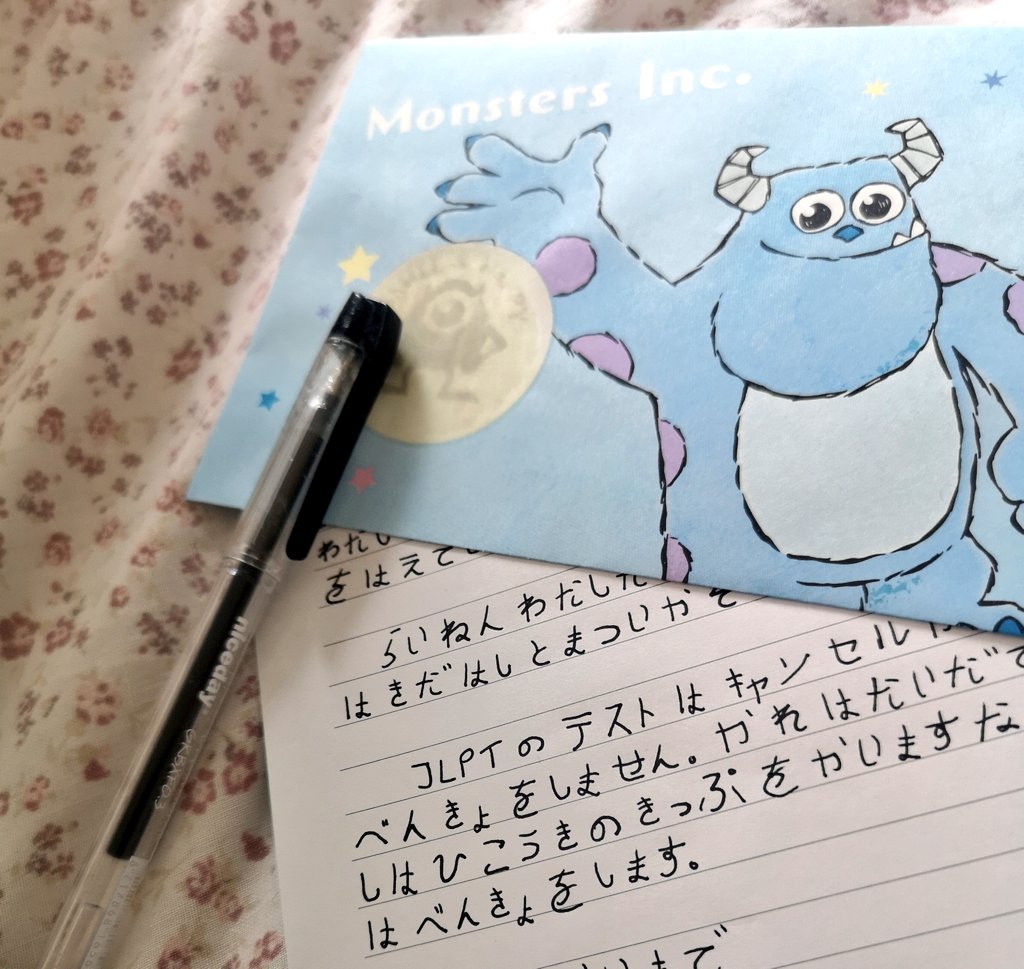 Monsters Inc.
niceday
わだし
をはえて
らいねんわだしだ
はきだはしとまついかぞ
JLPTのテストはキャンセル
べんきょをしません。かれはだいだで
しはひこうきのきっぷをかいますな
はべんきょをします。